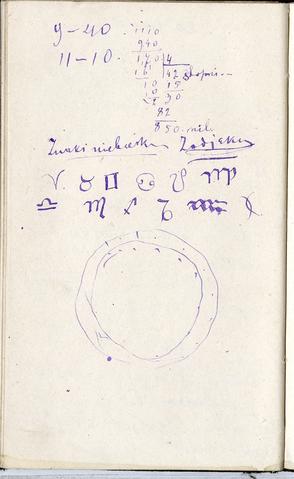 9 – 40   1110
940
11 – 10   170 | 4
16   42
10   15
30
82
850 mil.
Znaki niebieskie Zodjaku
♈ ♉ ♊ ♋ ♌ ♍
♎ ♏ ♐ ♑ ♒ ♓